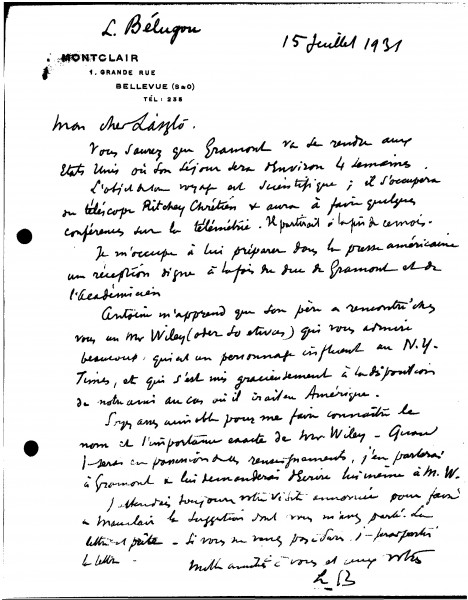 L. Bélugou
15 Juillet 1931
MONTCLAIR
1. GRANDE RUE
BELLEVUE (S&O)
TÉL: 235
Mon cher László.
Vous savez que Gramont va se rendre aux
Etats Unis où son séjour sera d'environ 4 semaines.
L'objet de son voyage est scientifique ; il s'occupera
du télescope Ritchey Chrétien & aura à faire quelques
conférences sur la télémétrie. Il partirait à la fin de ce mois.
Je m'occupe à lui préparer dans la presse américaine
une réception digne à la fois du duc de Gramont et de
l'Académicien
Antoine m'apprend que son père a rencontré chez
vous un Mr Wiley (oder so etwas) qui vous admire
beaucoup, qui est un personnage influent au N.Y.
Times, et qui s'est mis gracieusement à la disposition
de notre ami au cas où il irait en Amérique.
Soyez assez aimable pour me faire connaître le
nom et l'importance exacte de Mr Wiley – Quand
je serai en possession de ces renseignements, j'en parlerai
à Gramont & lui demanderai d'écrire lui même à M. W.
J'attendais toujours votre visite annoncée pour faire
à Mauclair la suggestion dont vous m'avez parlé. La
lettre est prête – Si vous ne venez pas
la lettre –
Mille amitiés à vous et aux vôtres
L B